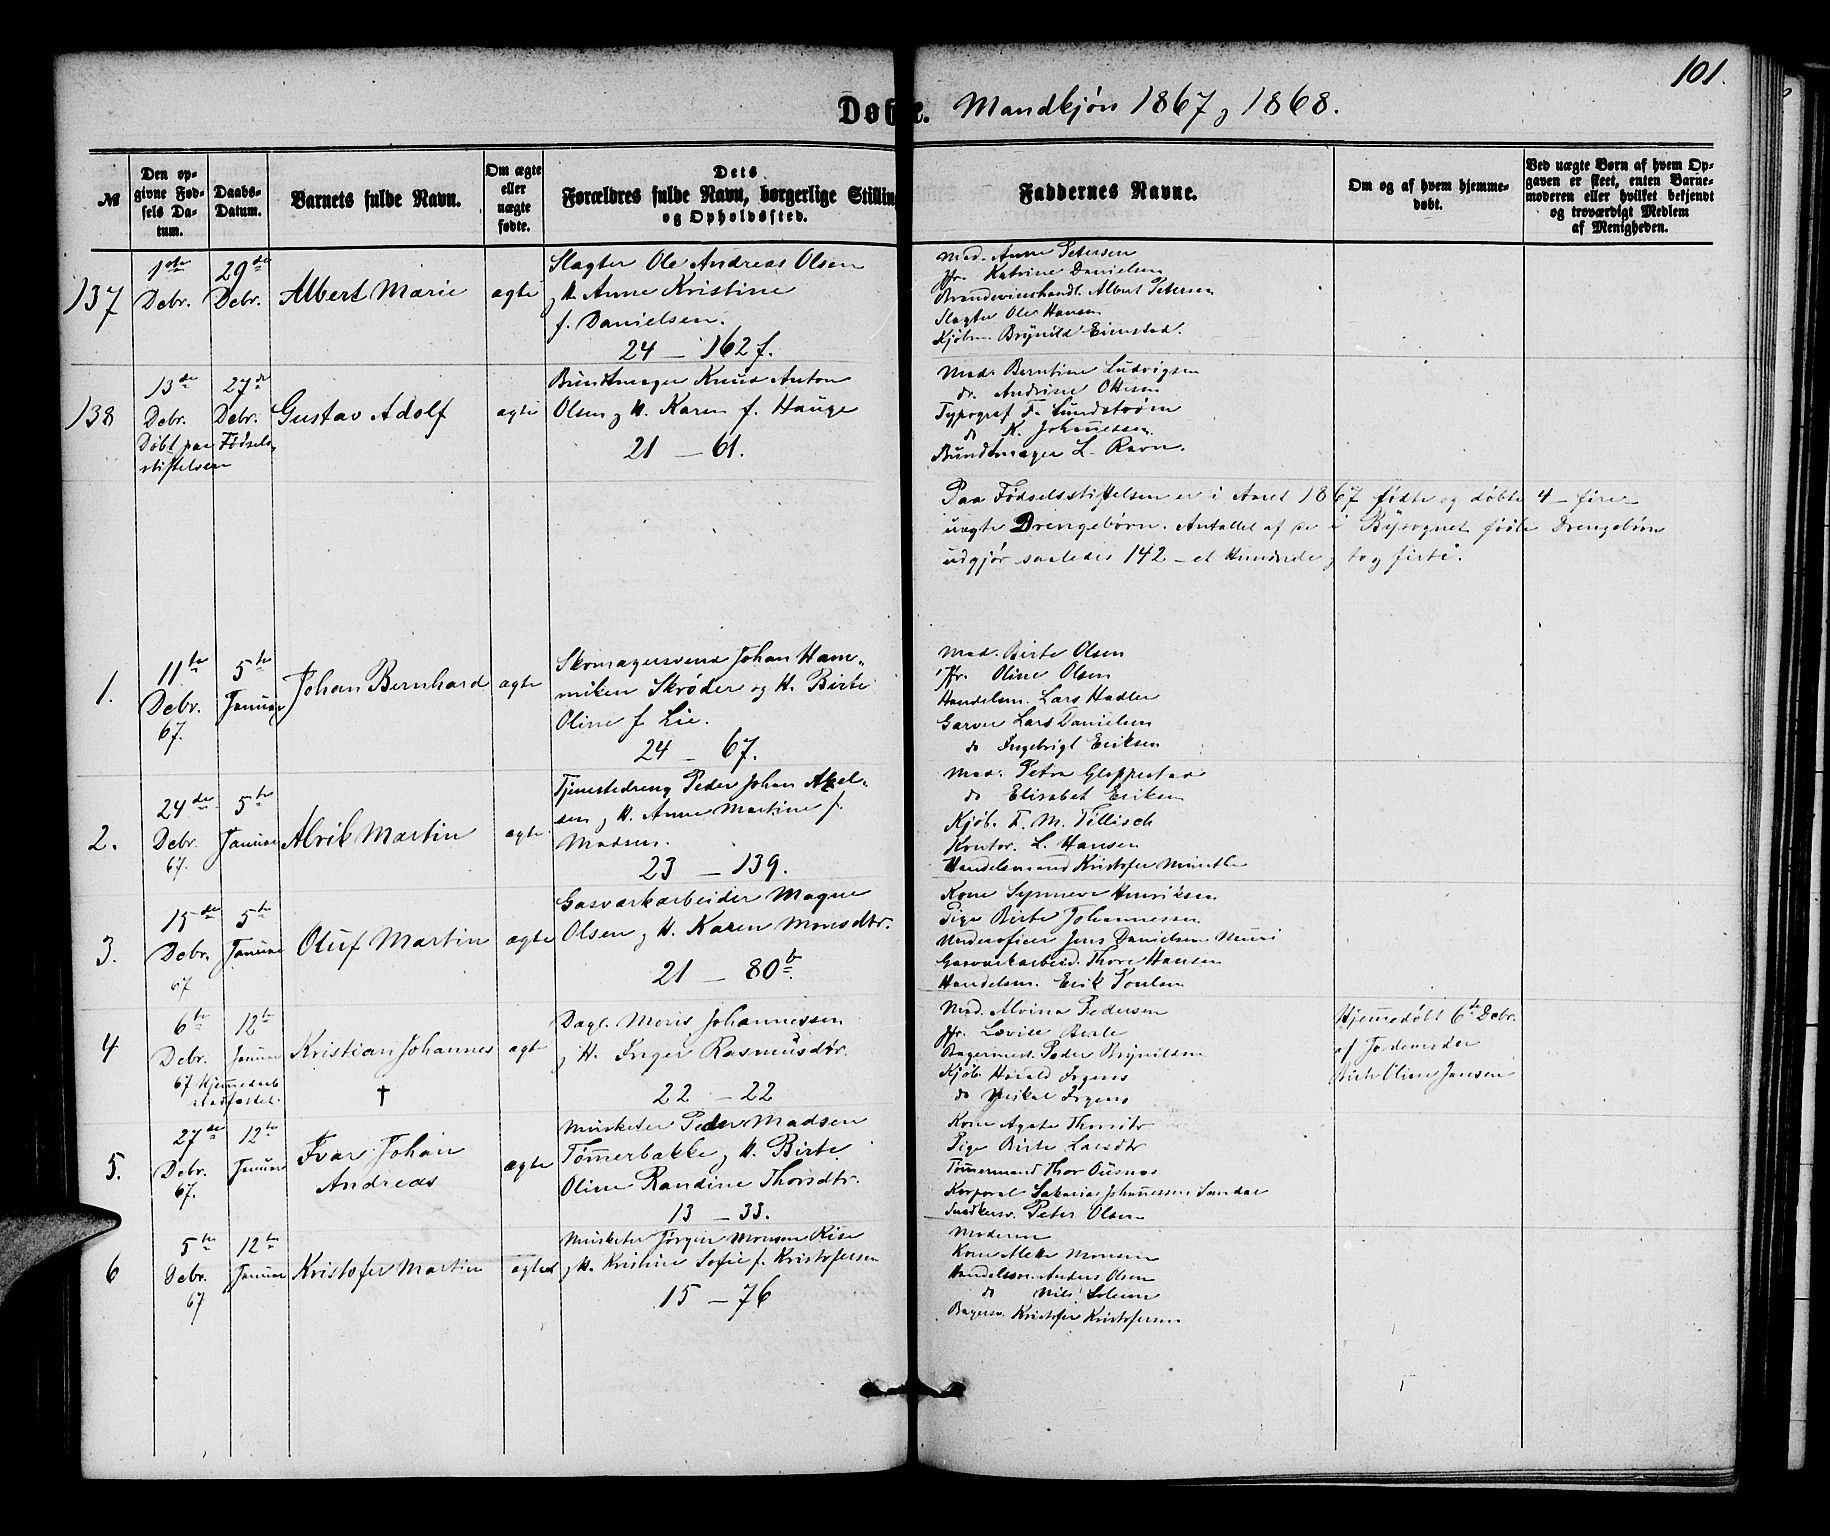 101.
Døbte. Mandkjøn 1867 og 1868.
№
Den opgivne Fødsels Datum.
Daabs-Datum.
Barnets fulde Navn.
Om ægte eller uægte fødte.
Dets Forældres fulde Navn, borgerlige Stilling og Opholdssted.
Faddernes Navne.
Om og af hvem hjemmedøbt.
Ved uægte Børn af hvem Opgaven er skeet, enten Barnemoderen eller hvilket bekjendt og troværdigt Medlem af Menigheden.
137
1ste Debr.
29de Debr.
Albert Marie
ægte
Slagter Ole Andreas Olsen
og H. Anne Kristine
f. Danielsen.
24 – 162 f.
Mad. Anne Petersen
Jfr. Katrine Danielsen
Brændevinshandl. Albert Petersen
Slagter Ole Hansen
Kjøbm. Brynild Eienstad.
138
13de Debr.
27de Debr.
Døbt paa Fødsels-
stiftelsen
Gustav Adolf
ægte
Bundtmager Knud Anton
Olsen og H. Karen f. Hauge
21 – 61.
Mad. Berntine Ludvigsen
do. Andrine Ottesen
Typograf F. Lundstrøm
do K. Johannessen
Bundtmager L. Ravn.
Paa Fødselsstiftelsen er i Aaret 1867 fødte og døbte 4 – fire
uægte Drengebørn. Antallet af de i Bysognet fødte Drengebørn
udgjør saaledes 142 – et Hundrede og to og firti.
1.
11te Debr. 67.
5te Januar
Johan Bernhard
ægte
Skomagersvend Johan Ham-
miken Skrøder og H. Birte
Oline f. Lie.
24 – 67.
Mad. Birte Olsen
Jfr. Oline Olsen
Handelsm. Lars Hadler
Garver Lars Danielsen
do Ingebrigt Eriksen
2.
24de Debr. 67.
5te Januar
Alrik Martin
ægte
Tjenestedreng Peder Johan Aksel-
sen og H. Anne Martine f.
Madsen.
23 – 139.
Mad. Petra Gloppestad
do Elisabet Eriksen
Kjøb. F. M. Tillisch
Kontor. L. Hansen
Handelsmand Kristofer Minthe
3.
15de Debr. 67
5te Januar
Oluf Martin
ægte
Gasværkarbeider Magne
Olsen og H. Karen Monsdtr.
21 – 80b.
Kone Synneve Henriksen
Pige Birte Johannessen
Underofficer Jens Danielsen
Gasværkarbeid. Thore Hansen
Handelsm. Erik Poulsen
4
6te Debr. 67
12te Januar
Hjemmedaab
stadfæstet.
Kristian Johannes
†
ægte
Dagl. Moris Johannessen
og H. Inger Rasmusdtr.
22 – 22
Mad. Alvina Pedersen
Jfr. Lovise Berle
Bagermest. Peder Brynildsen
Kjøb. Harald Irgens
do Mikal Irgens
Hjemmedøbt 6te Debr.
af Jordemoder
Birte Oline Jansen
5.
27de Debr. 67.
12te Januar
Ivar Johan
Andreas
ægte
Musketer Peder Madsen
Tømmerbakke og H. Birte
Oline Randine Thorsdtr.
13 – 33.
Kone Agate Thorsdtr
Pige Birte Larsdtr
Tømmermand Thor Ousnes
Korporal Sakarias Johannessen Sandal
Snedkersv. Peter Olsen
6
5te Debr. 67
12te Januar
Kristofer Martin
ægted
Musketer Jørgen Monsen Rise
og H. Kristine Sofie f. Kristofersen
15 – 76
Moderen
Kone Mette Monsen
Handelsm. Anders Olsen
do Nils Solem
Bagersv. Kristofer Kristofersen